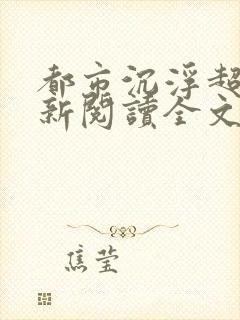 都市沉浮超
新閱讀全文
焦莹